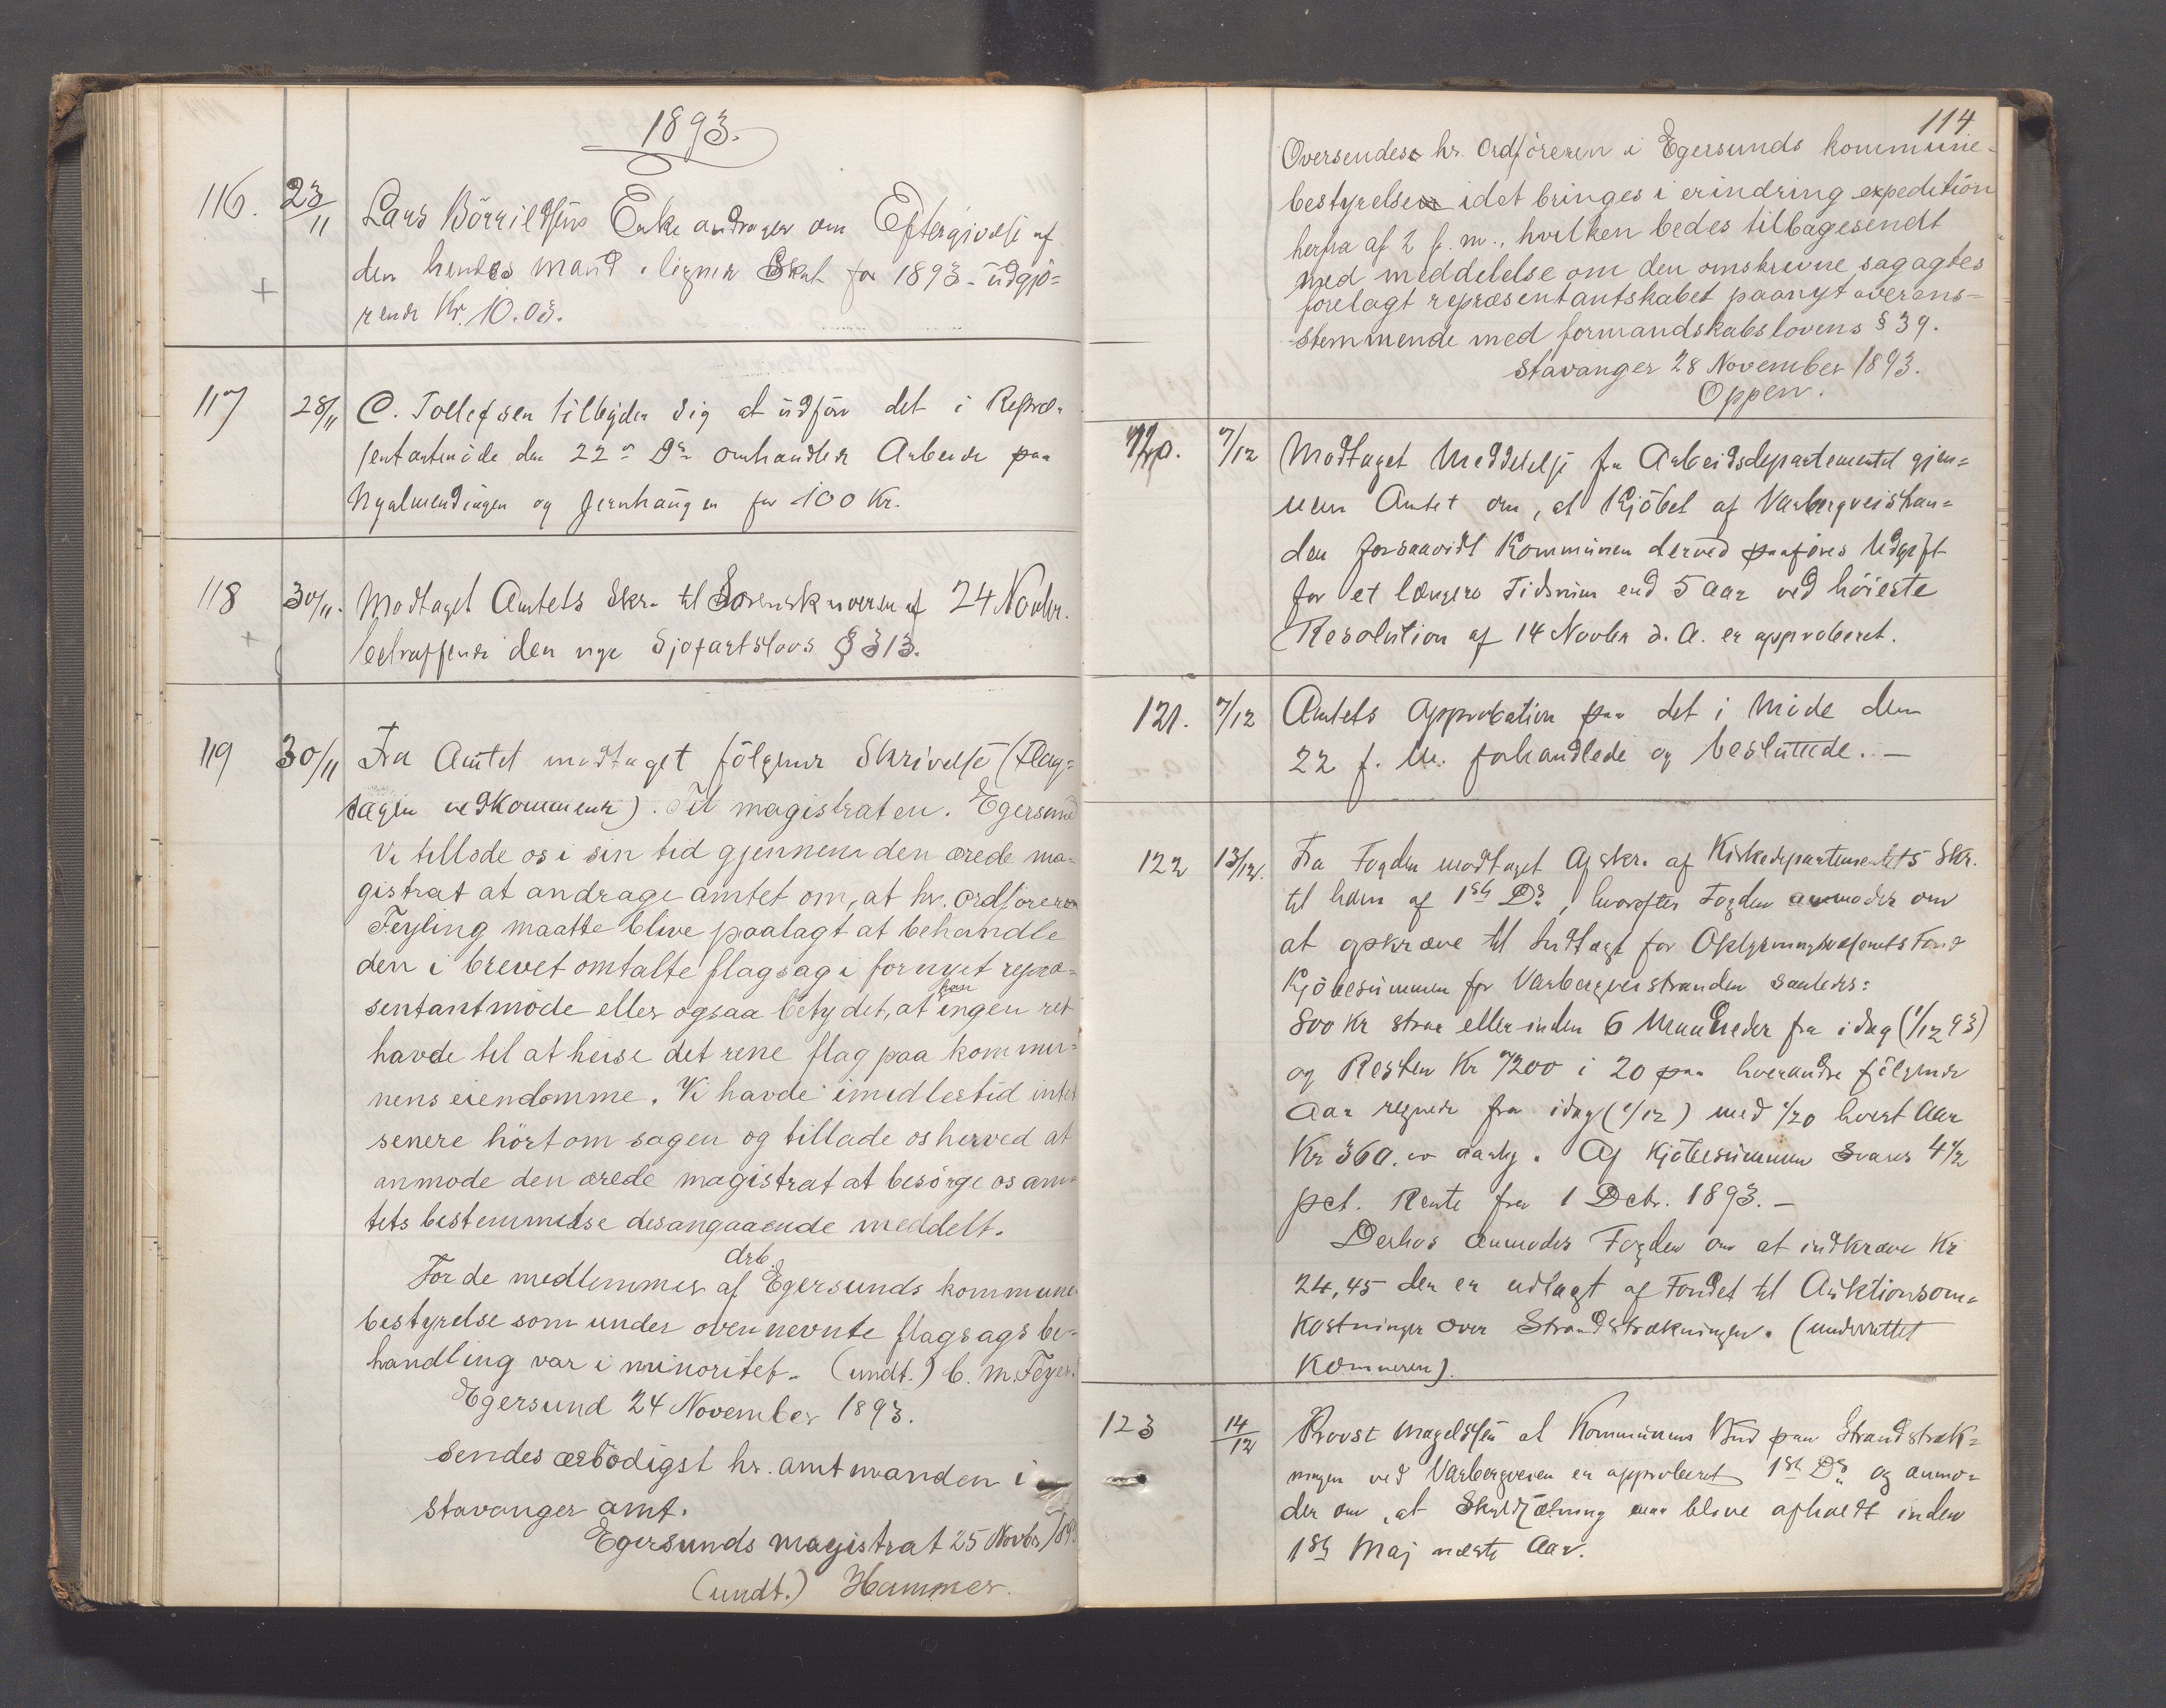 1893.
116. 23/11 Lars Börrildsens Enke andrager om Eftergivelse af
den hendes mand ilignede Skat for 1893 - udgjö=
rende Kr. 10.03.
117 28/11 C. Tollefsen tilbyder sig at udföre det i Repræ-
sentantmöde den 22de Ds omhandlede Arbeide paa
Nyalmendingen og Jernhaugen for 100 Kr.
118 30/11. Modtaget Amtets Skr. til af 24 Novbr.
betræffende den nye Sjøfartslovs § 313.
119 30/11 Fra Amtet modtaget følgende Skrivelse (Flag=
sagen vedkommende). Til magistraten. Egersund
Vi tillode os i sin tid gjennem den ærede ma=
gistrat at andrage amtet om, at hr. ordförer
Feyling maatte blive paalagt at behandle
den i brevet omtalte flagsag i fornyet repræ=
sentantmöde eller ogsaa betydet, at han ingen ret
havde til at heise det rene flag paa kommu=
nens eiendomme. Vi havde imidlertid intet
senere hört om sagen og tillade os herved at
anmode den ærede magistrat at besörge os am=
tets bestemmelse desangaaende meddelt.
For de medlemmer af drb. Egersunds kommune
bestyrelse som under ovennevnte flagsags be-
handling var i minoritet. (undt.) C. M. Feyer.
Egersund 24 November 1893.
Sendes ærbödigst hr. amtmanden i
Stavanger amt.
Egersunds magistrat 25 Novbr 189
(undt.) Hammer.
114
Oversendes hr. Ordföreren i Egersunds kommune-
bestyrelse idet bringes i erindring expedition
herfra af 2 f. m., hvilken bedes tilbagesendt
med meddelelse om den omskrevne sag agtes
forelagt repræsentantskabet paanyt overens-
stemmende med formandskabslovens § 39.
Stavanger 28 November 1893.
Oppen.
120. 7/12 Modtaget Meddelelse fra Arbeidsdepartementet gjen=
nem Amtet om, at Kjöbet af Varbergveistran=
den forsaavidt Kommunen derved paaføres Udgift
for et længere Tidsrum end 5 aar ved höieste
Resolution af 14 Novbr d. A. er approberet.
121. 7/12 Amtets Approbation paa det i Møde den
22 f. M. forhandlede og besluttede. —
122 13/12. Fra Fogden modtaget Afskr. af Kirkedepartementets Skr.
til ham af 1ste Ds, hvorefter Fogden anmoder om
at opkræve til Indtægt for Oplysningsvesenets Fond
Kjöbesummen for Varbergveistranden saaledes:
800 Kr strax eller inden 6 Maaneder fra idag (1/12 93)
og Resten Kr 7200 i 20 paa hverandre fölgende
Aar regnede fra idag (1/12) med 1/20 hvert Aar
Kr 360.00 aarlig. Af Kjöbesummen svares 4 1/2
pct. Rente fra 1 Decbr. 1893. —
Derhos anmodes Fogden om at indkræve Kr
24,45 der er udlagt af Fondet til Auktionsom=
kostninger over Strandstrækningen. (underrettet
Kæmneren).
123 14/12 Provst Magelssen at Kommunens Bud paa Strandstræk=
ningen ved Varbergveien er approberet 1ste Ds og anmo=
der om, at Skyldsætning maa blive afholdt inden
1ste Maj næste Aar.